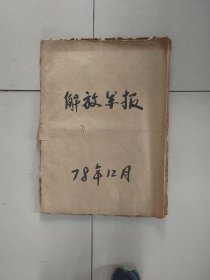 解放军报
78年12月